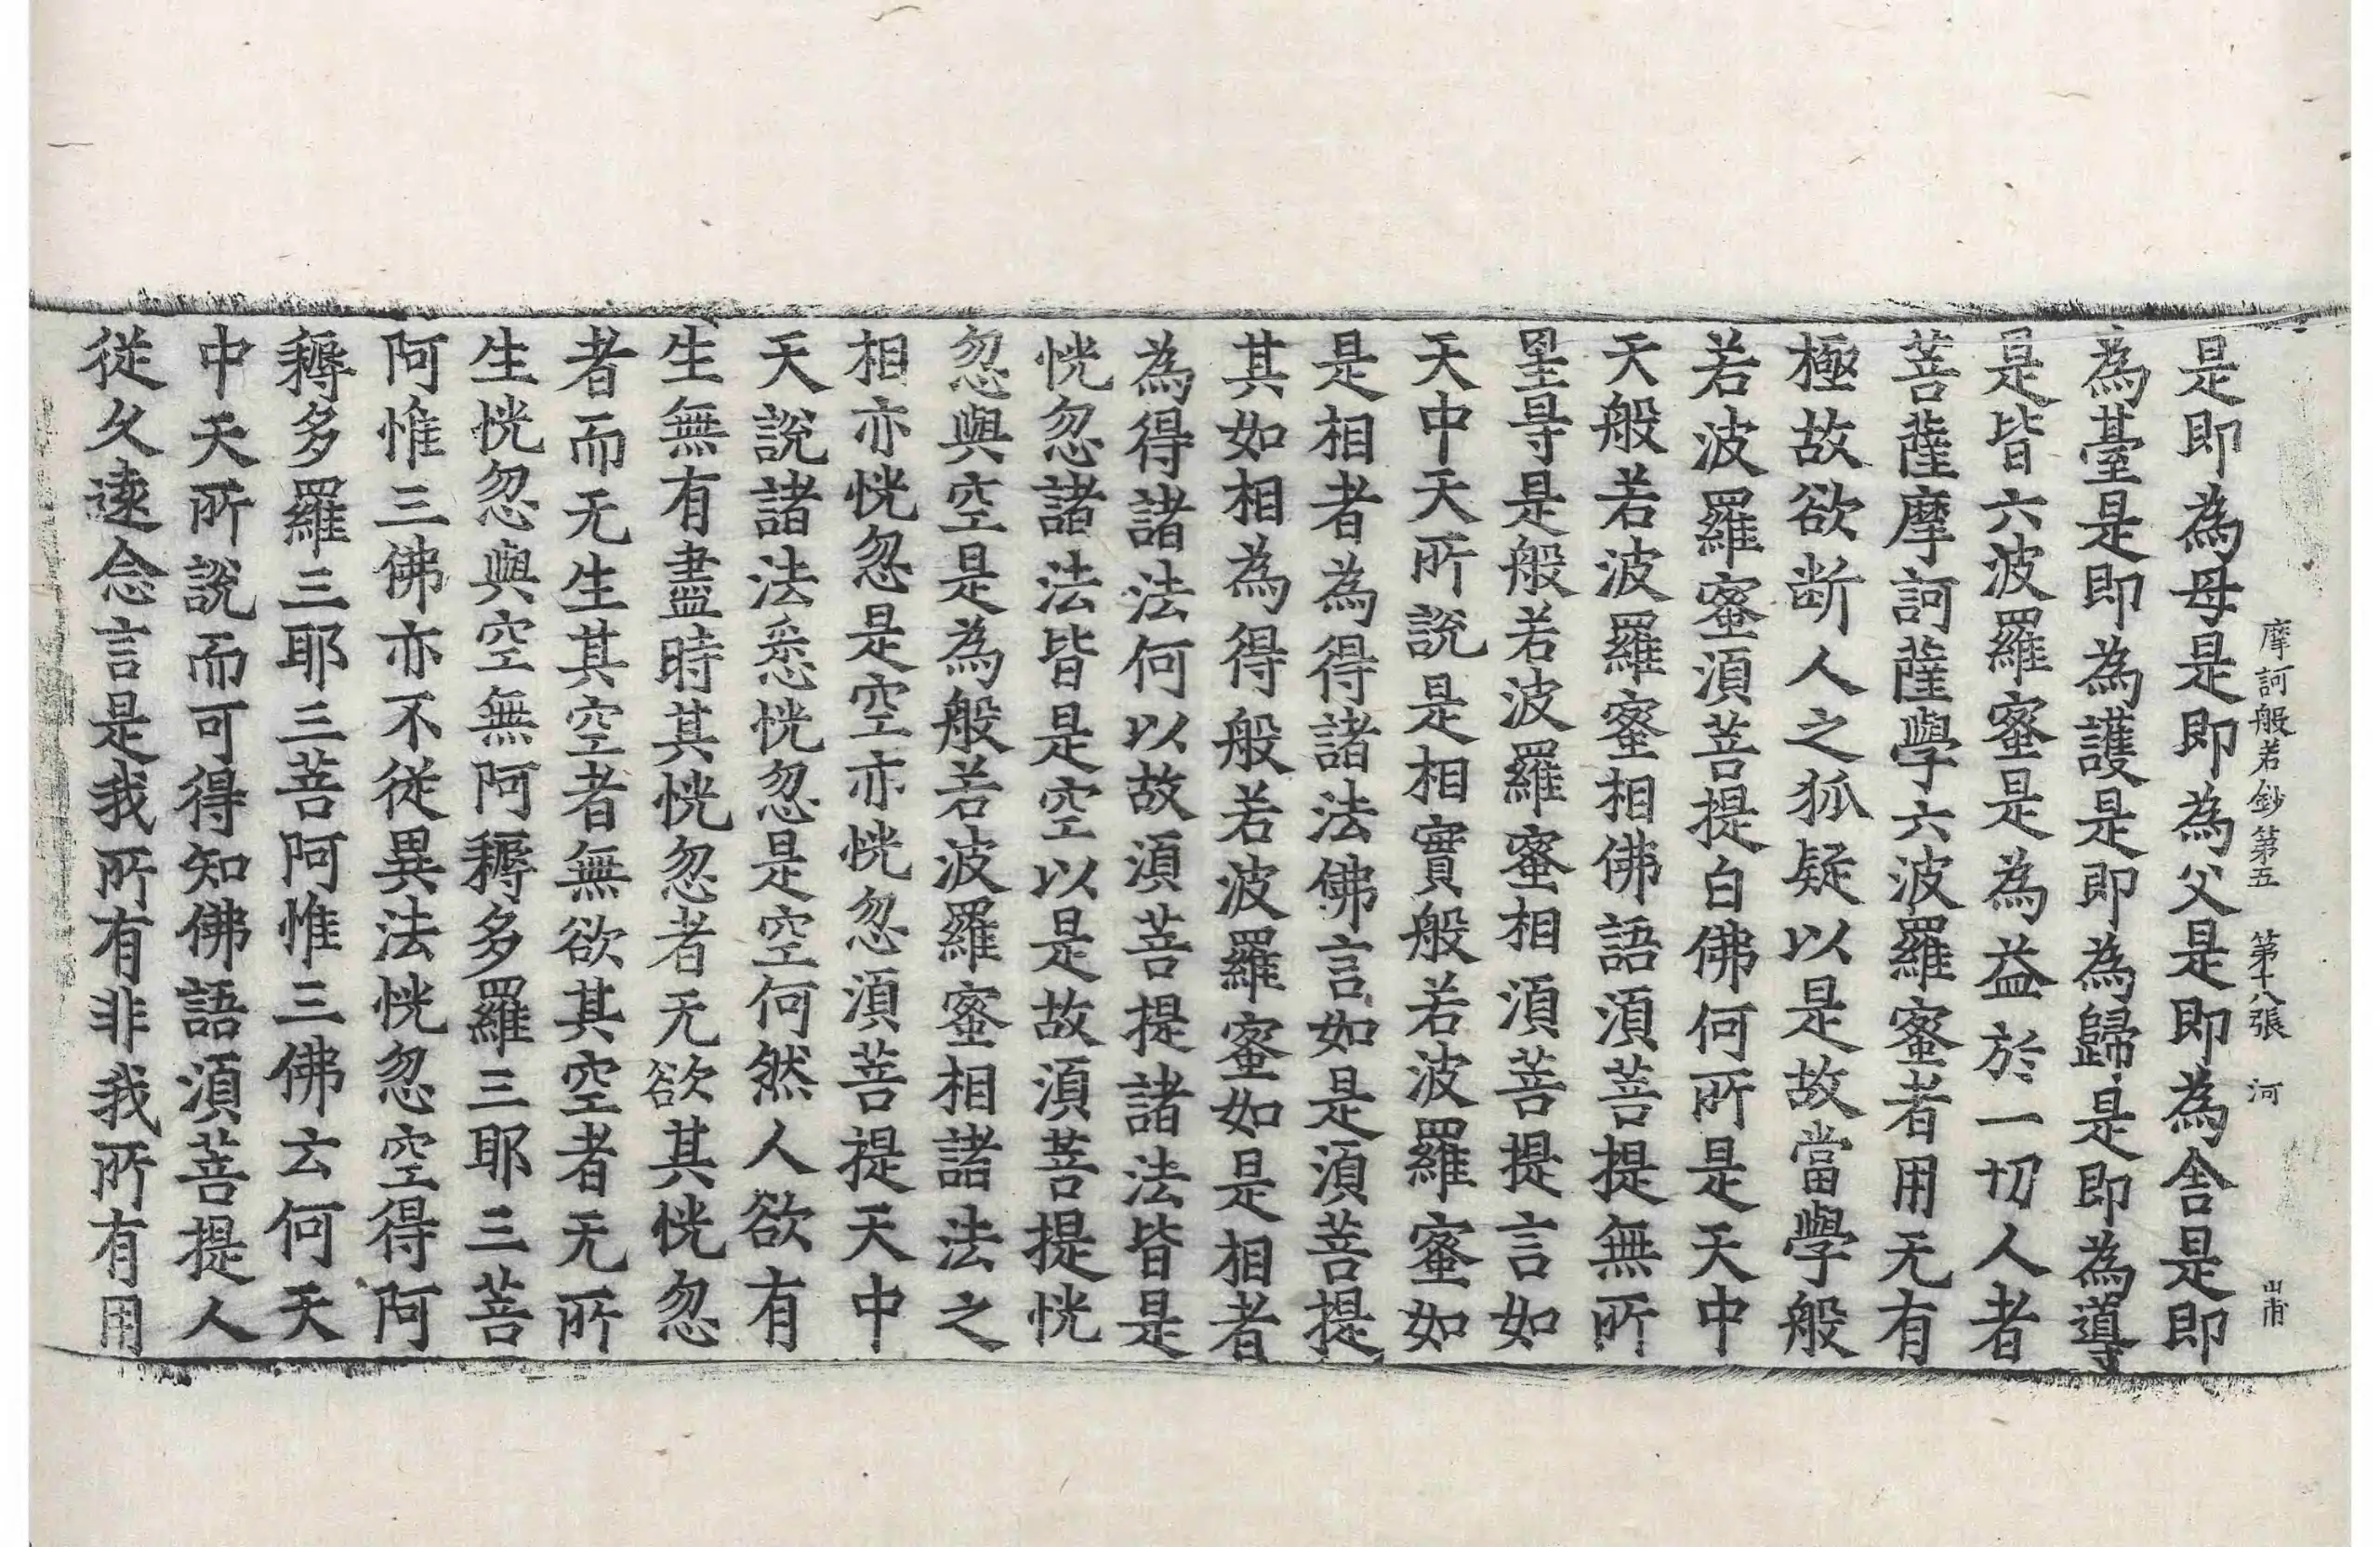 摩訶般若鈔第五 第十八張 河
是即為母是即為父是即為舍是即
為臺是即為護是即為歸是即為導
是皆六波羅蜜是為益於一切人者
菩薩摩訶薩學六波羅蜜者用无有
極故欲断人之狐疑以是故當學般
若波羅蜜須菩提白佛何所是天中
天般若波羅蜜相佛語須菩提無所
罣㝵是般若波羅蜜相須菩提言如
天中天所說是相實般若波羅蜜如
是相者為得諸法佛言如是須菩提
其如相為得般若波羅蜜如是相者
為得諸法何以故須菩提諸法皆是
恍忽諸法皆是空以是故須菩提恍
忽與空是為般若波羅蜜相諸法之
相亦恍忽是空亦恍忽須菩提天中
天說諸法悉恍忽是空何然人欲有
生無有盡時其恍忽者无欲其恍忽
者而无生其空者無欲其空者无所
生恍忽與空無阿耨多羅三耶三菩
阿惟三佛亦不從異法恍忽空得阿
耨多羅三耶三菩阿惟三佛云何天
中天所說而可得知佛語須菩提人
從久遠念言是我所有非我所有用